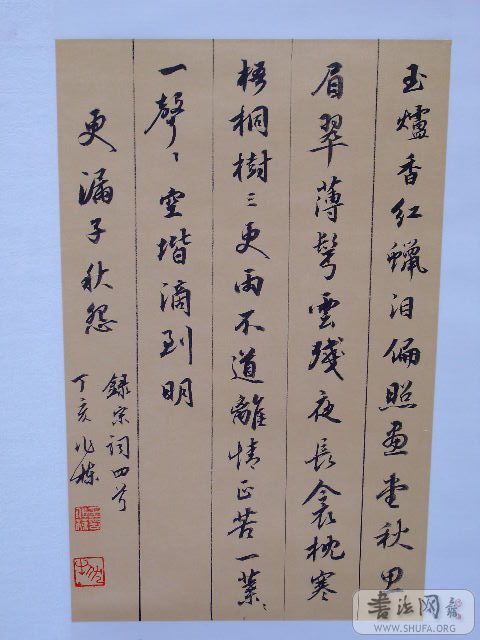 玉爐香紅蠟泪偏照畫堂秋思
眉翠薄鬢雲殘夜長衾枕寒
梧桐樹三更雨不道離情正苦一葉〻
一聲〻空堦滴到明
更漏子秋怨
録宋詞四首
丁亥
书法网
WWW.SHUFA.ORG